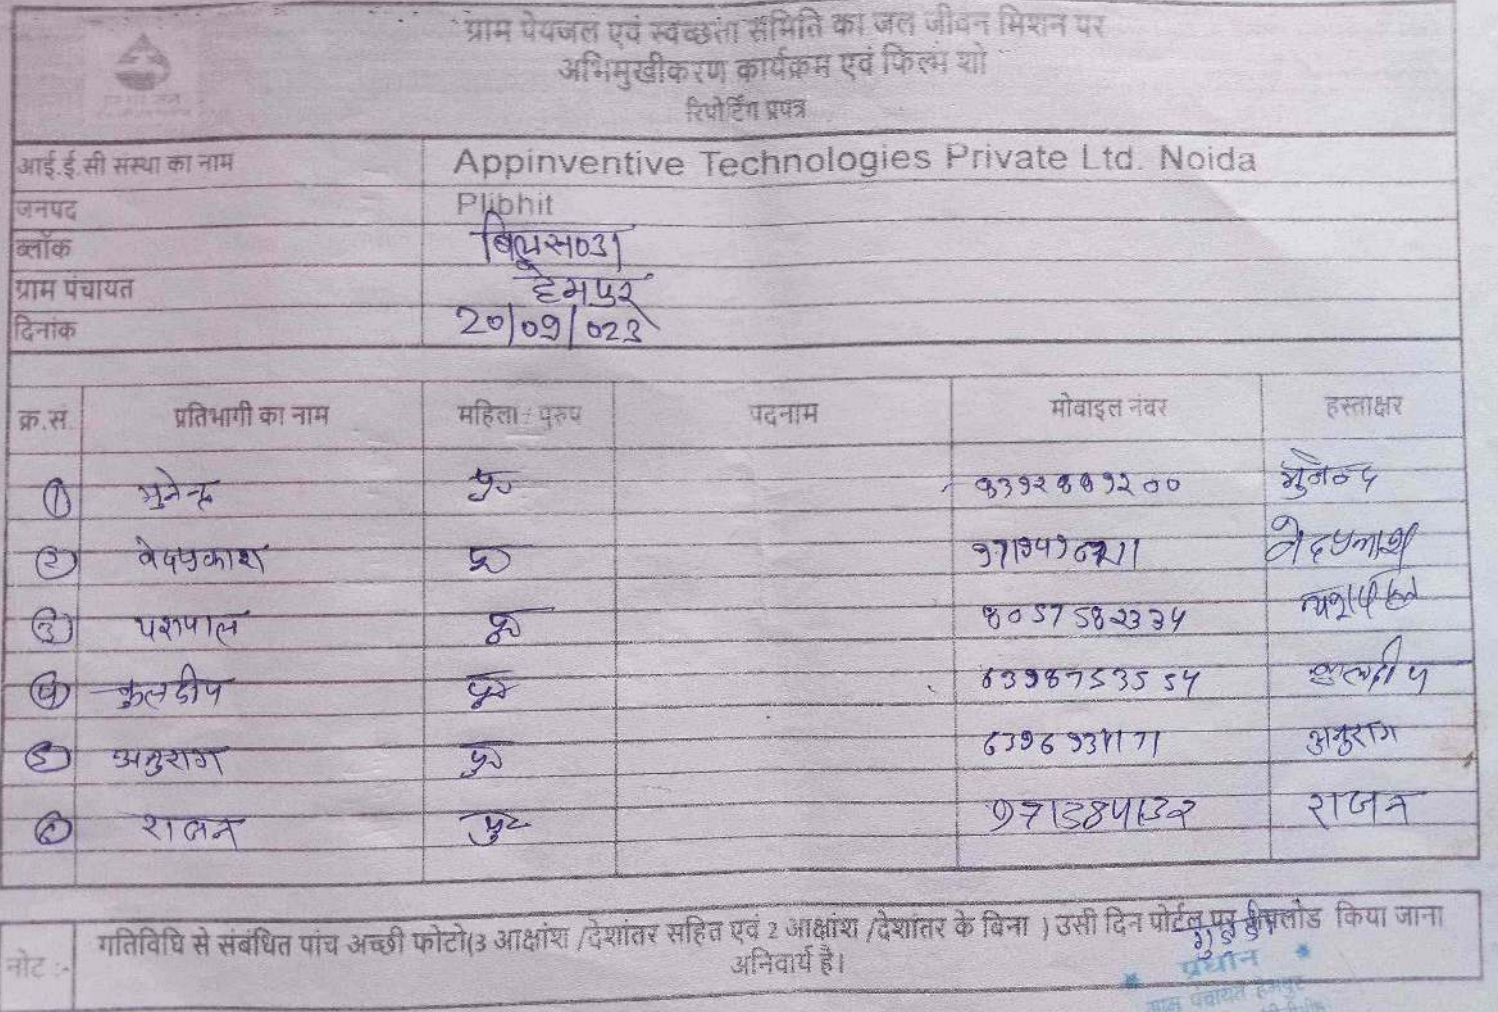 ग्राम पेयजल एवं स्वच्छता समिति का जल जीवन मिशन पर
अभिमुखीकरण कार्यक्रम एवं फिल्म शो
रिपोर्टिंग प्रपत्र
आई.ई.सी संस्था का नाम Appinventive Technologies Private Ltd. Noida
जनपद Plibhit
ब्लॉक
ग्राम पंचायत हेमपुर
दिनांक 20/09/023
क्र.सं. प्रतिभागी का नाम महिला / पुरुष पदनाम मोबाइल नंबर हस्ताक्षर
① मुनेन्द्र पु०
② वेदप्रकाश पु० वेदप्रकाश
③ यशपाल पु० 8057582334 यशपाल
④ कुलदीप पु० 6398753554 कुलदीप
⑤ अनुराग पु० अनुराग
⑥ राजन पु० राजन
नोट :- गतिविधि से संबंधित पांच अच्छी फोटो(3 आक्षांश /देशांतर सहित एवं 2 आक्षांश /देशांतर के बिना ) उसी दिन पोर्टल पर अपलोड किया जाना
अनिवार्य है।
प्रधान
ग्राम पंचायत हेमपुर